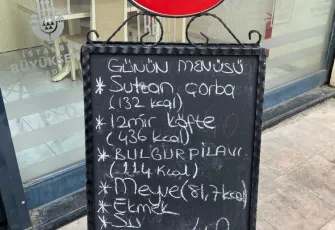 İSTA
BÜYÜKŞE
GÜNÜN MENÜSÜ
* Sultan çorba
(132 kcal)
* Izmir köfte
(436 kcal)
* BULGUR PİLAVI
(114 kcal)
* Meyve (81,7 kcal)
* Ekmek
* Su